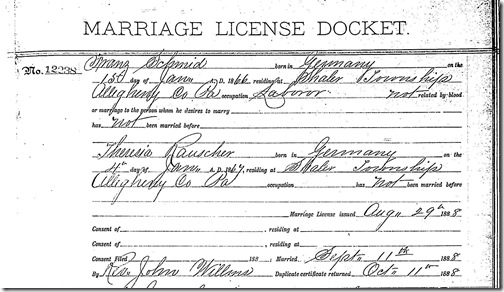 MARRIAGE LICENSE DOCKET.
No. 12238 Franz Schmid born in Germany on the
1st day of Jan. A. D. 1866 residing at Shaler Township
Allegheny Co Pa occupation Laboror not related by blood
or marriage to the person whom he desires to marry
has not been married before
Theresia Rauscher born in Germany on the
4th day of Jan. A. D. 1867, residing at Shaler Township
Allegheny Co Pa occupation has not been married before
Marriage License issued Aug 29th 1888
Consent of , residing at
Consent of , residing at
Consent Filed 188 ; Married Sept. 11th 1888
By Rev. John Willms Duplicate certificate returned Oct 11th 1888